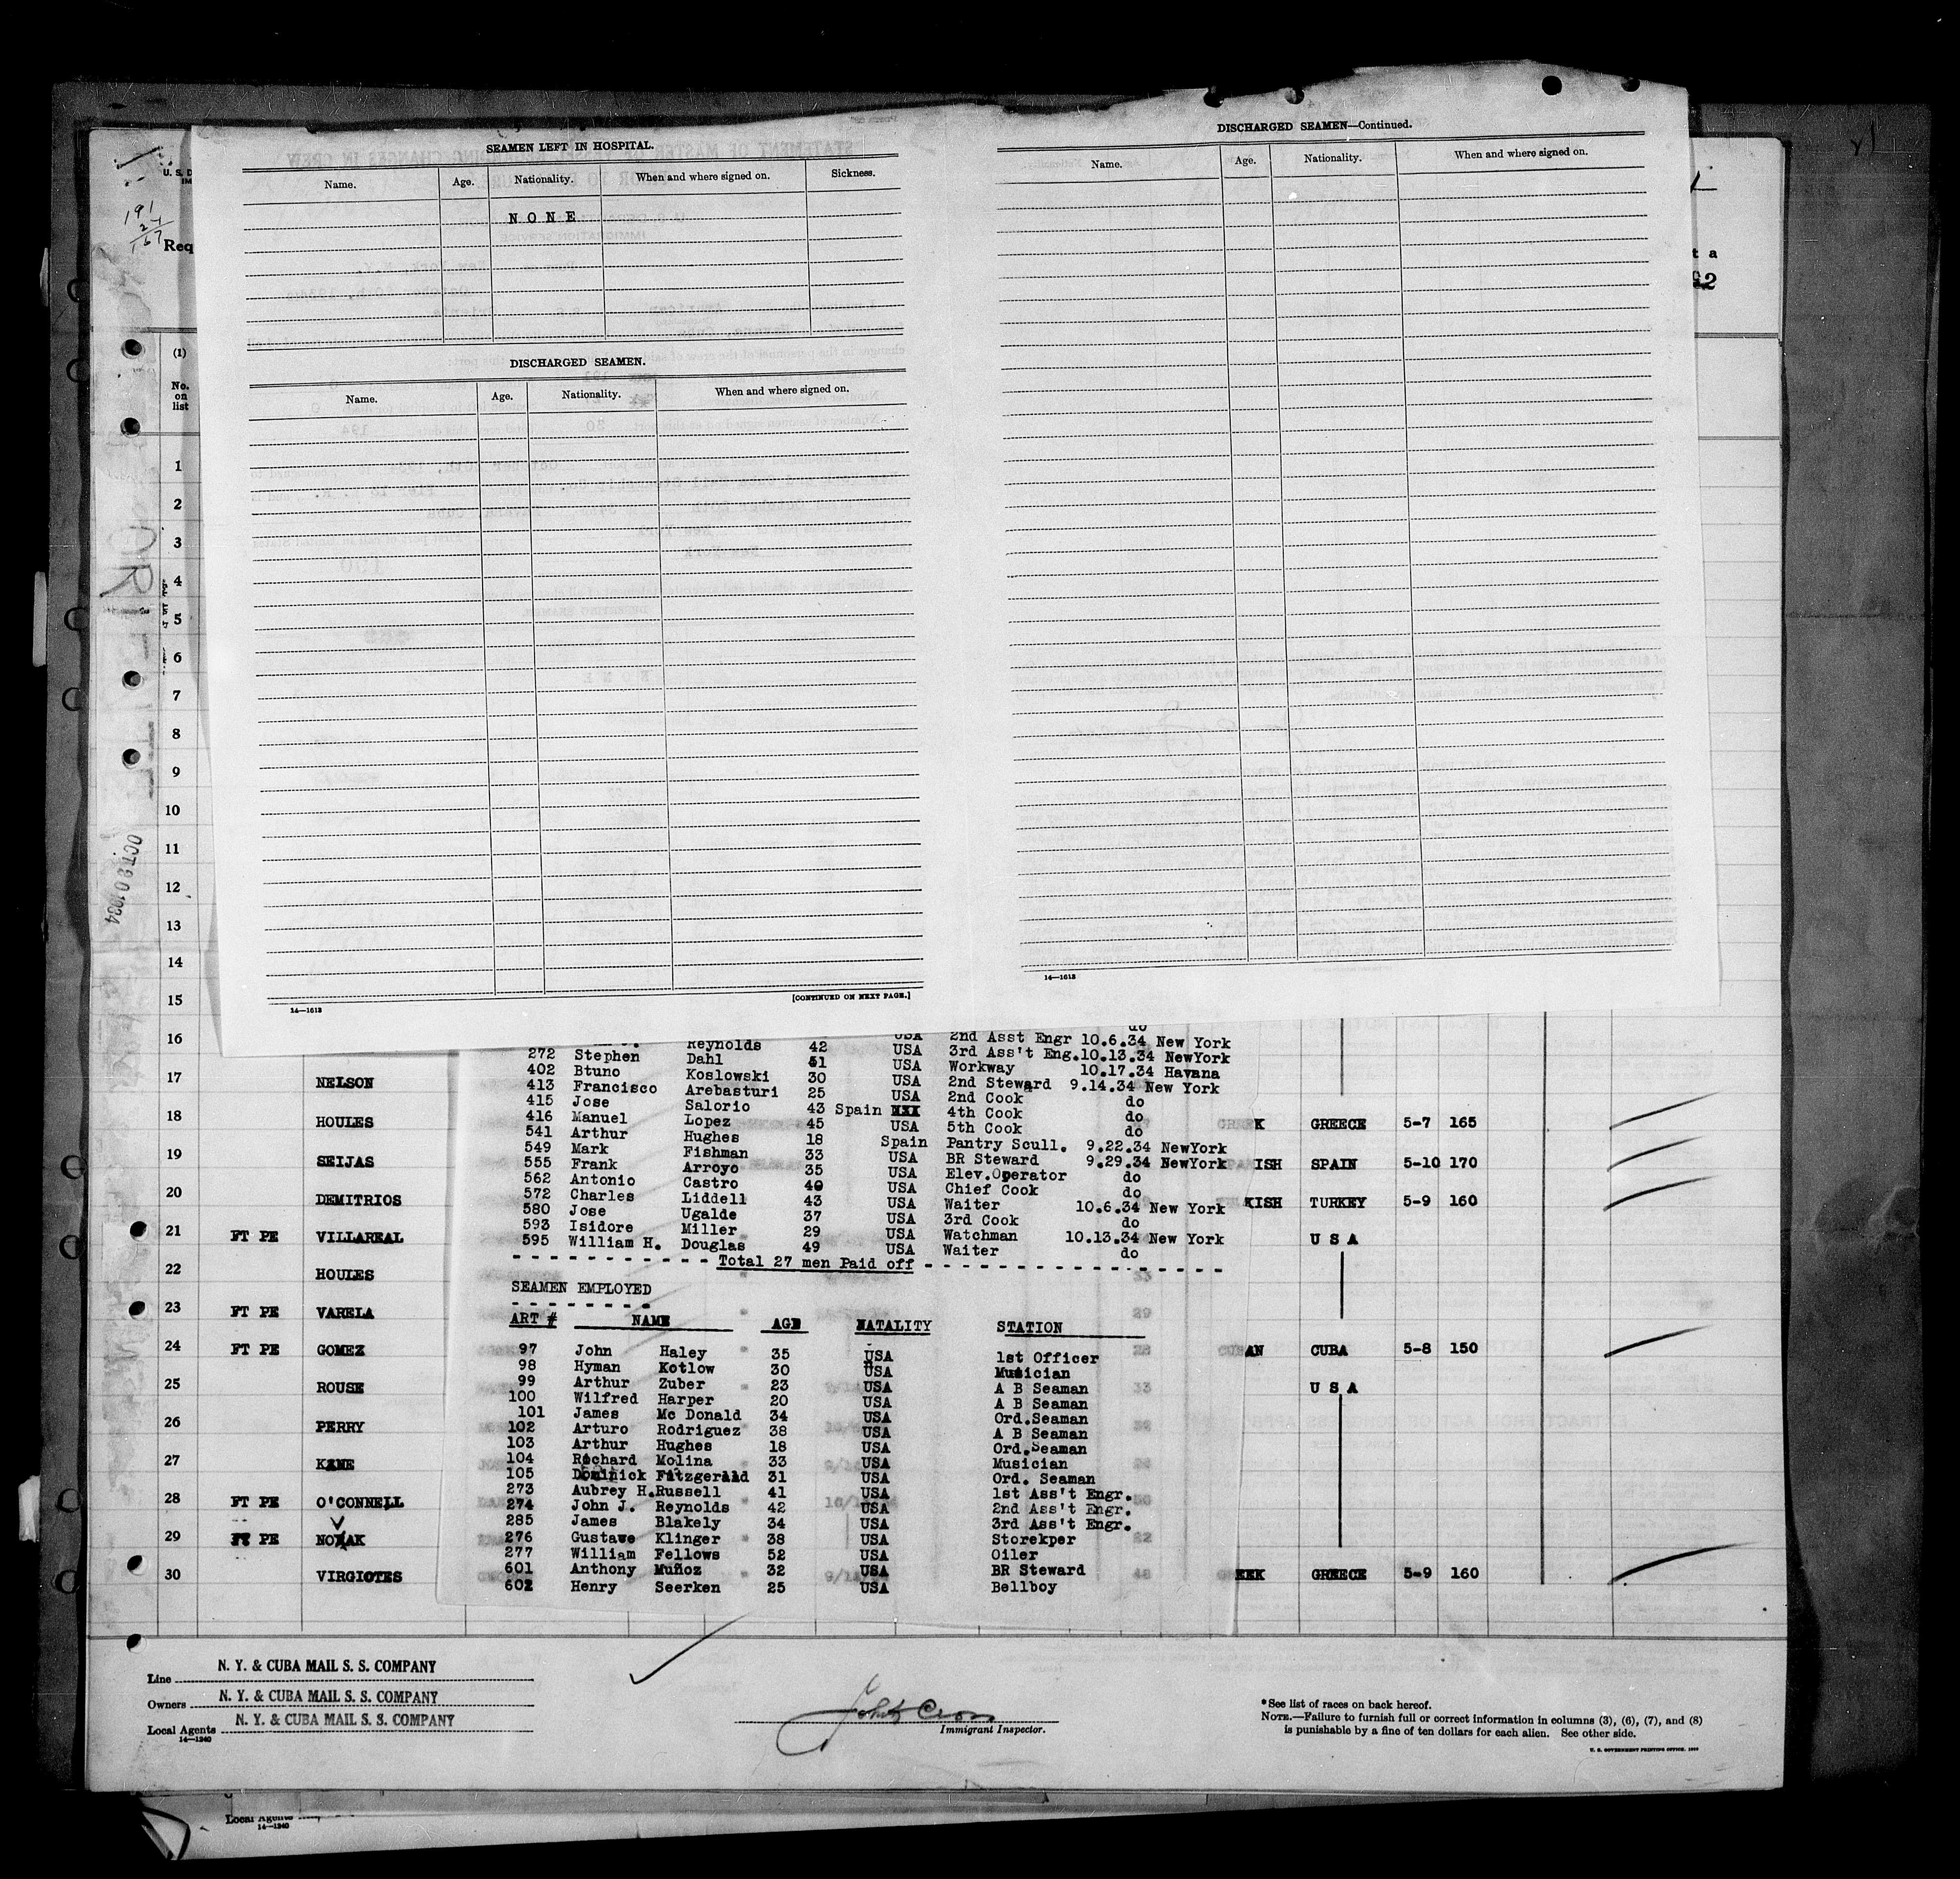 SEAMEN LEFT IN HOSPITAL.
Name. Age. Nationality. When and where signed on. Sickness.
N O N E
DISCHARGED SEAMEN.
Name. Age. Nationality. When and where signed on.
14—1613
[CONTINUED ON NEXT PAGE.]
DISCHARGED SEAMEN—Continued.
Name. Age. Nationality. When and where signed on.
14—1613
U. S. D
IM
191
24
167
Req
t a
62
(1)
No.
on
list
OCT 20 1934
1
2
3
4
5
6
7
8
9
10
11
12
13
14
15
16
17 NELSON
18 HOULES K GREECE 5-7 165
19 SEIJAS ISH SPAIN 5-10 170
20 DEMITRIOS KISH TURKEY 5-9 160
21 FT PE VILLAREAL U S A
22 HOULES
23 FT PE VARELA
24 FT PE GOMEZ AN CUBA 5-8 150
25 ROUSE U S A
26 PERRY
27 KANE
28 FT PE O'CONNELL
29 FT PE NOVAK
30 VIRGIOTES EEK GREECE 5-9 160
do
Reynolds 42 USA 2nd Asst Engr 10.6.34 New York
272 Stephen Dahl 51 USA 3rd Ass't Eng.10.13.34 NewYork
402 Btuno Koslowski 30 USA Workway 10.17.34 Havana
413 Francisco Arebasturi 25 USA 2nd Steward 9.14.34 New York
415 Jose Salorio 43 Spain 2nd Cook do
416 Manuel Lopez 45 USA 4th Cook do
541 Arthur Hughes 18 USA 5th Cook do
549 Mark Fishman 33 Spain Pantry Scull. 9.22.34 NewYork
555 Frank Arroyo 35 USA BR Steward 9.29.34 NewYork
562 Antonio Castro 40 USA Elev.Operator do
572 Charles Liddell 43 USA Chief Cook do
580 Jose Ugalde 37 USA Waiter 10.6.34 New York
593 Isidore Miller 29 USA 3rd Cook do
595 William H. Douglas 49 USA Watchman 10.13.34 New York
USA Waiter do
- - - - - - - - - - - Total 27 men Paid off - - - - - - - - - - - - - - - - -
SEAMEN EMPLOYED
- - - - - - - -
ART # NAME AGE NATALITY STATION
97 John Haley 35 USA 1st Officer
98 Hyman Kotlow 30 USA Musician
99 Arthur Zuber 23 USA A B Seaman
100 Wilfred Harper 20 USA A B Seaman
101 James Mc Donald 34 USA Ord.Seaman
102 Arturo Rodriguez 38 USA A B Seaman
103 Arthur Hughes 18 USA Ord.Seaman
104 Richard Molina 33 USA Musician
105 Dominick Fitzgerald 31 USA Ord. Seaman
273 Aubrey H.Russell 41 USA 1st Ass't Engr.
274 John J. Reynolds 42 USA 2nd Ass't Engr.
285 James Blakely 34 USA 3rd Ass't Engr.
276 Gustave Klinger 38 USA Storekper
277 William Fellows 52 USA Oiler
601 Anthony Muñoz 32 USA BR Steward
602 Henry Seerken 25 USA Bellboy
Line N. Y. & CUBA MAIL S. S. COMPANY
Owners N. Y. & CUBA MAIL S. S. COMPANY
Local Agents N. Y. & CUBA MAIL S. S. COMPANY
14—1240
Immigrant Inspector.
*See list of races on back hereof.
NOTE.—Failure to furnish full or correct information in columns (3), (6), (7), and (8)
is punishable by a fine of ten dollars for each alien. See other side.
Local Agents
14—1240